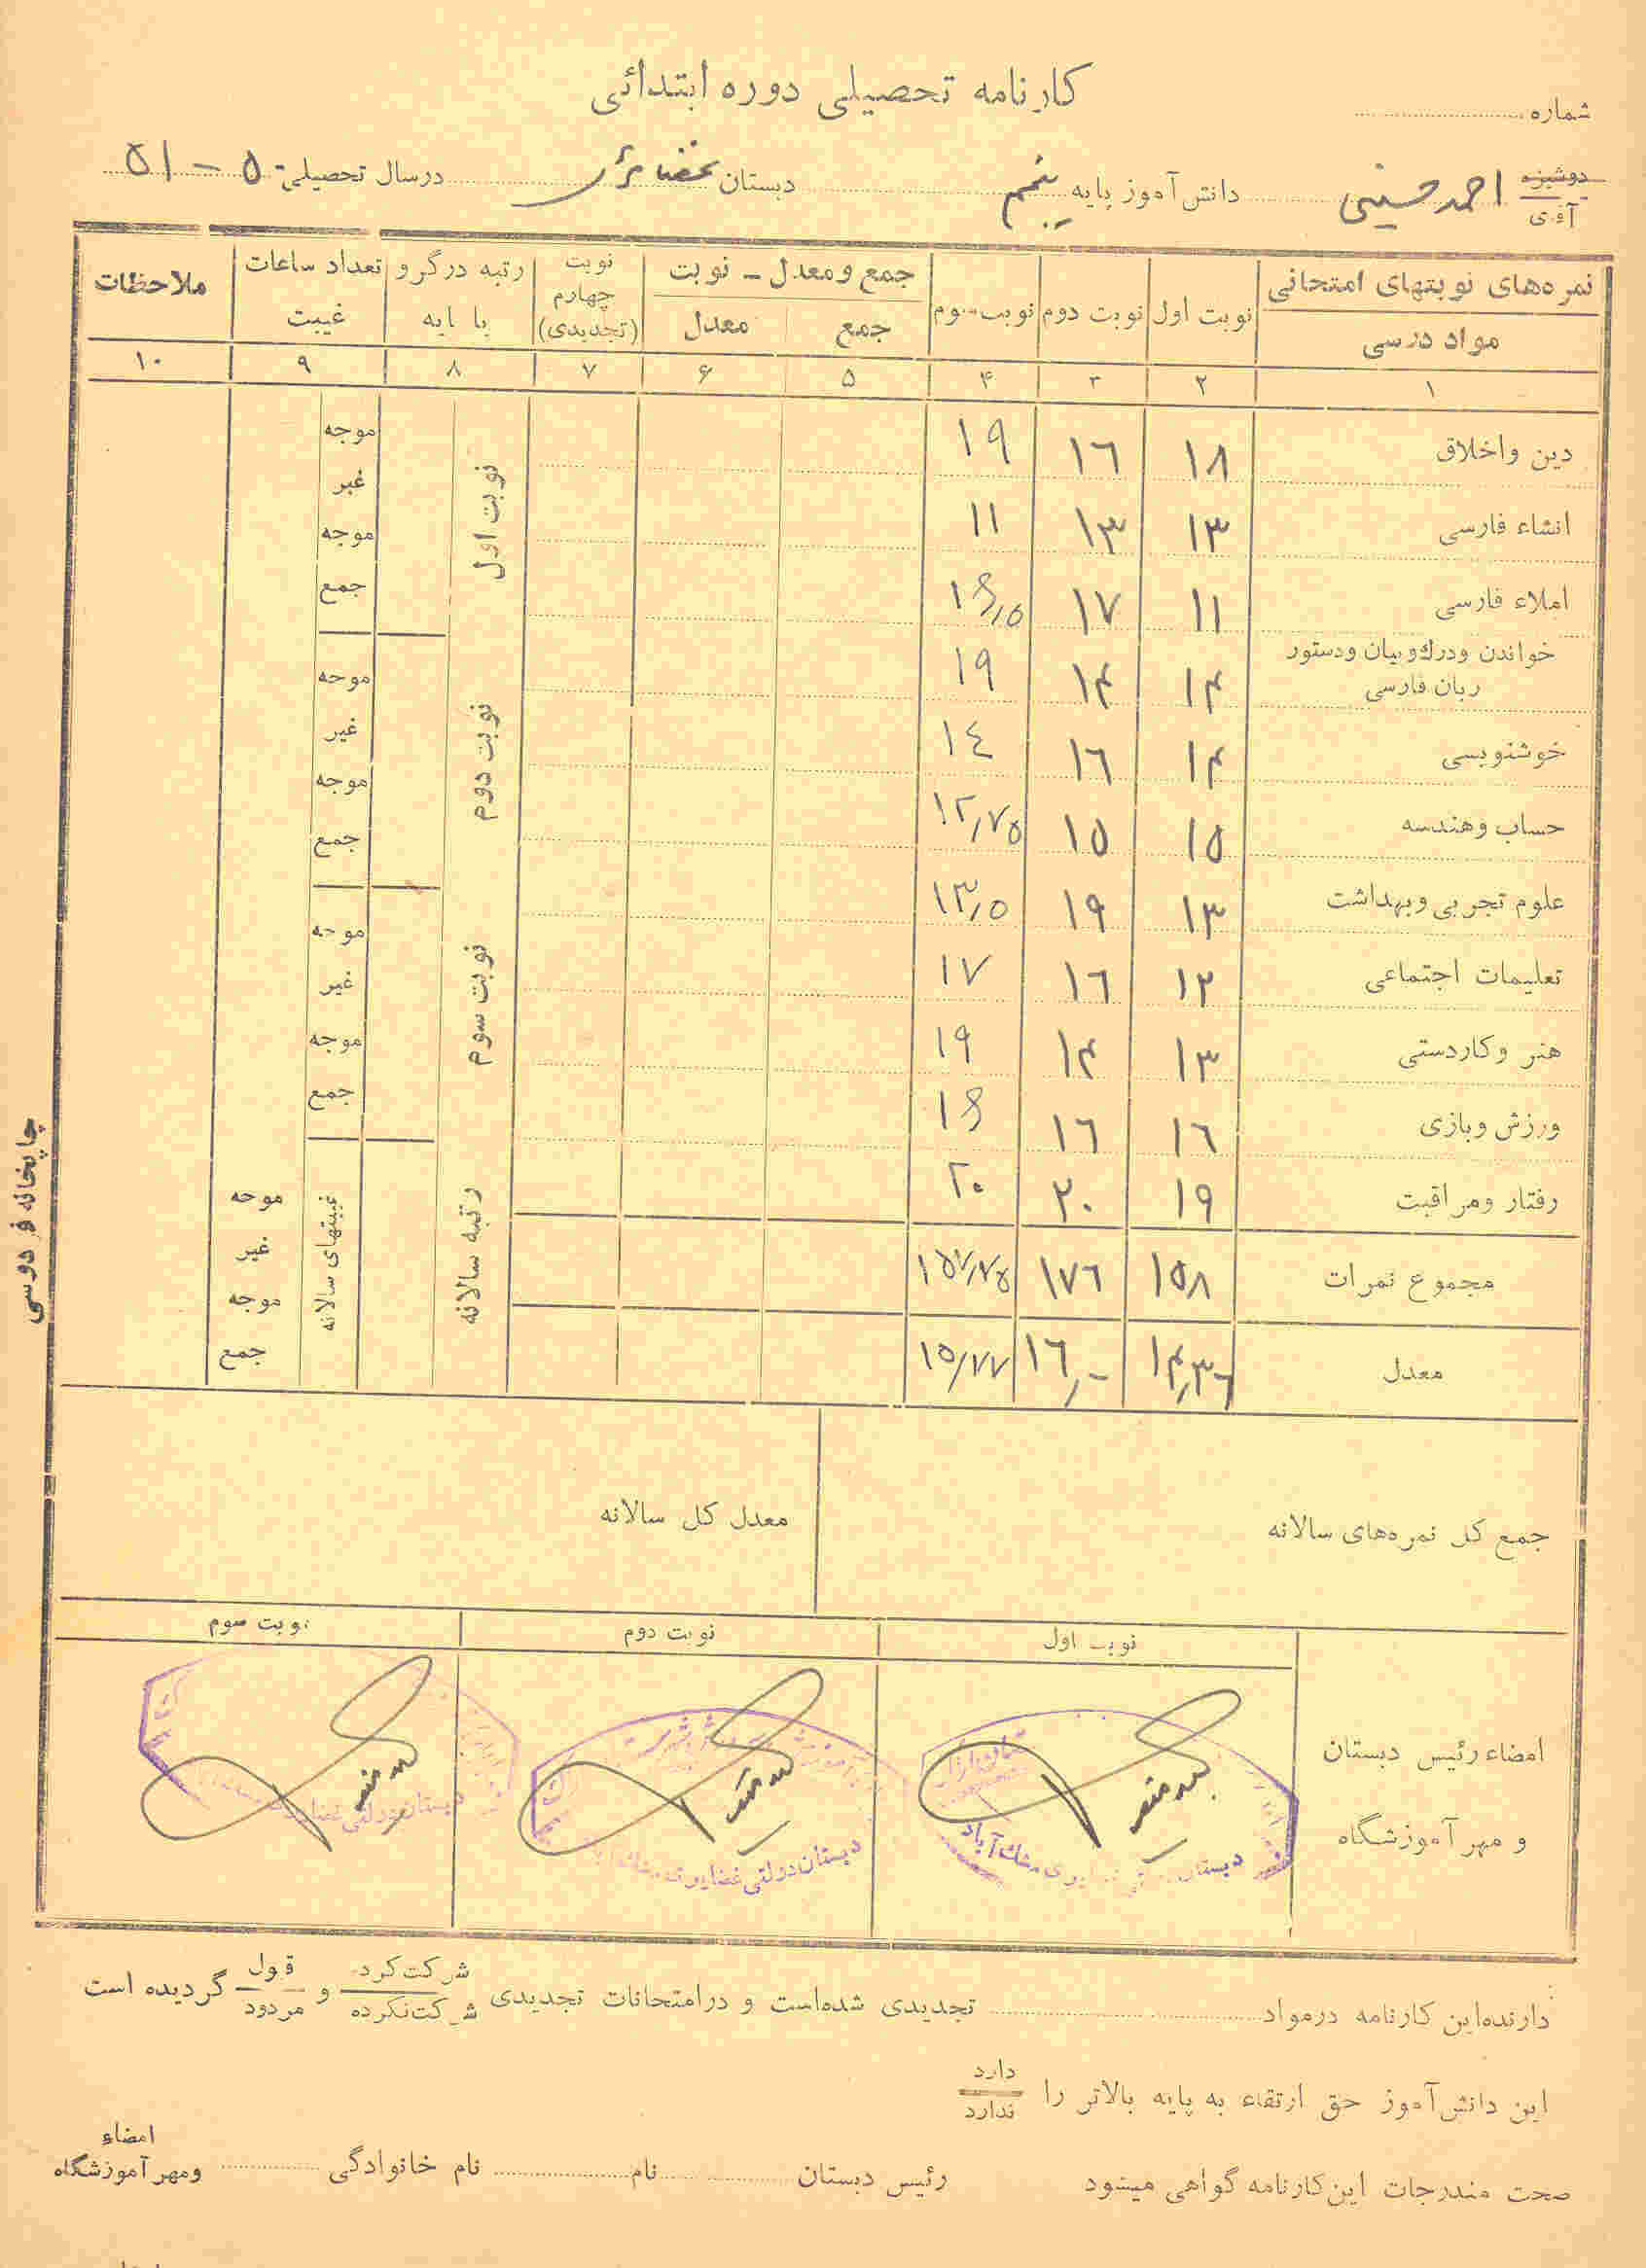 کارنامه تحصیلی دوره ابتدائی
شماره
دوشیزه
آقای
احمد حسینی دانش آموز پایه پنجم دبستان غضائری درسال تحصیلی ۵۱ - ۵۰
نمره‌های نوبتهای امتحانی نوبت اول نوبت دوم نوبت سوم جمع ومعدل - نوبت نوبت چهارم (تجدیدی) رتبه درگر و با پایه تعداد ساعات غیبت ملاحظات
مواد درسی جمع معدل
۱ ۲ ۳ ۴ ۵ ۶ ۷ ۸ ۹ ۱۰
دین واخلاق ۱۸ ۱۶ ۱۹
انشاء فارسی ۱۳ ۱۳ ۱۱
املاء فارسی ۱۱ ۱۷ ۱۶٫۵
خواندن ودرك وبیان ودستور
زبان فارسی ۱۴ ۱۴ ۱۹
خوشنویسی ۱۴ ۱۶ ۱۴
حساب وهندسه ۱۵ ۱۵ ۱۲٫۷۵
علوم تجربی وبهداشت ۱۳ ۱۹ ۱۳٫۵
تعلیمات اجتماعی ۱۳ ۱۶ ۱۷
هنر وکاردستی ۱۳ ۱۴ ۱۹
ورزش وبازی ۱۶ ۱۶ ۱۶
رفتار ومراقبت ۱۹ ۲۰ ۲۰
مجموع نمرات ۱۵۸ ۱۷۶ ۱۵۷٫۷۵
معدل ۱۴٫۳۶ ۱۶٫۰ ۱۵٫۷۷
نوبت اول
موجه
غیر
موجه
جمع
نوبت دوم
موجه
غیر
موجه
جمع
نوبت سوم
موجه
غیر
موجه
جمع
رتبه سالانه
غیبتهای سالانه
موجه
غیر
موجه
جمع
جمع کل نمره‌های سالانه معدل کل سالانه
نوبت اول نوبت دوم نوبت سوم
امضاء رئیس دبستان
و مهر آموزشگاه
دبستان مشك آباد
دبستان دولتی غضایری
دبستان دولتی
دارنده‌این کارنامه درمواد تجدیدی شده‌است و درامتحانات تجدیدی شرکت‌کرده و قبول گردیده است
شرکت‌نکرده مردود
این دانش‌آموز حق ارتقاء به پایه بالاتر را دارد
ندارد
صحت مندرجات این‌کارنامه گواهی میشود رئیس دبستان نام نام خانوادگی امضاء
ومهر آموزشگاه
چاپخانه فردوسی